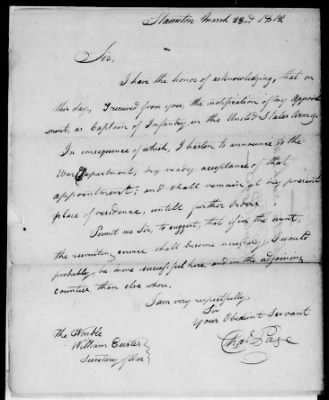 Staunton March 23rd 1812
Sir,
I have the honor of acknowledging, that on
this day, I received from you, the notification of my appoint
ment, as Captain of Infantry in the United States Army.
In consequence of which, I hasten to announce to the
War Department, my ready acceptance of that
appointment; and shall remain at my present
place of residence, untill further orders.
Permit me Sir, to suggest, that if in the event,
the recruiting service shall become necessary, I would
probably, be more successful here, and in the adjoining
counties, than else where.
I am very respectfully,
Sir
Your Obedient Servant
Chas. Page
The Honble
William Eustis
Secretary of War